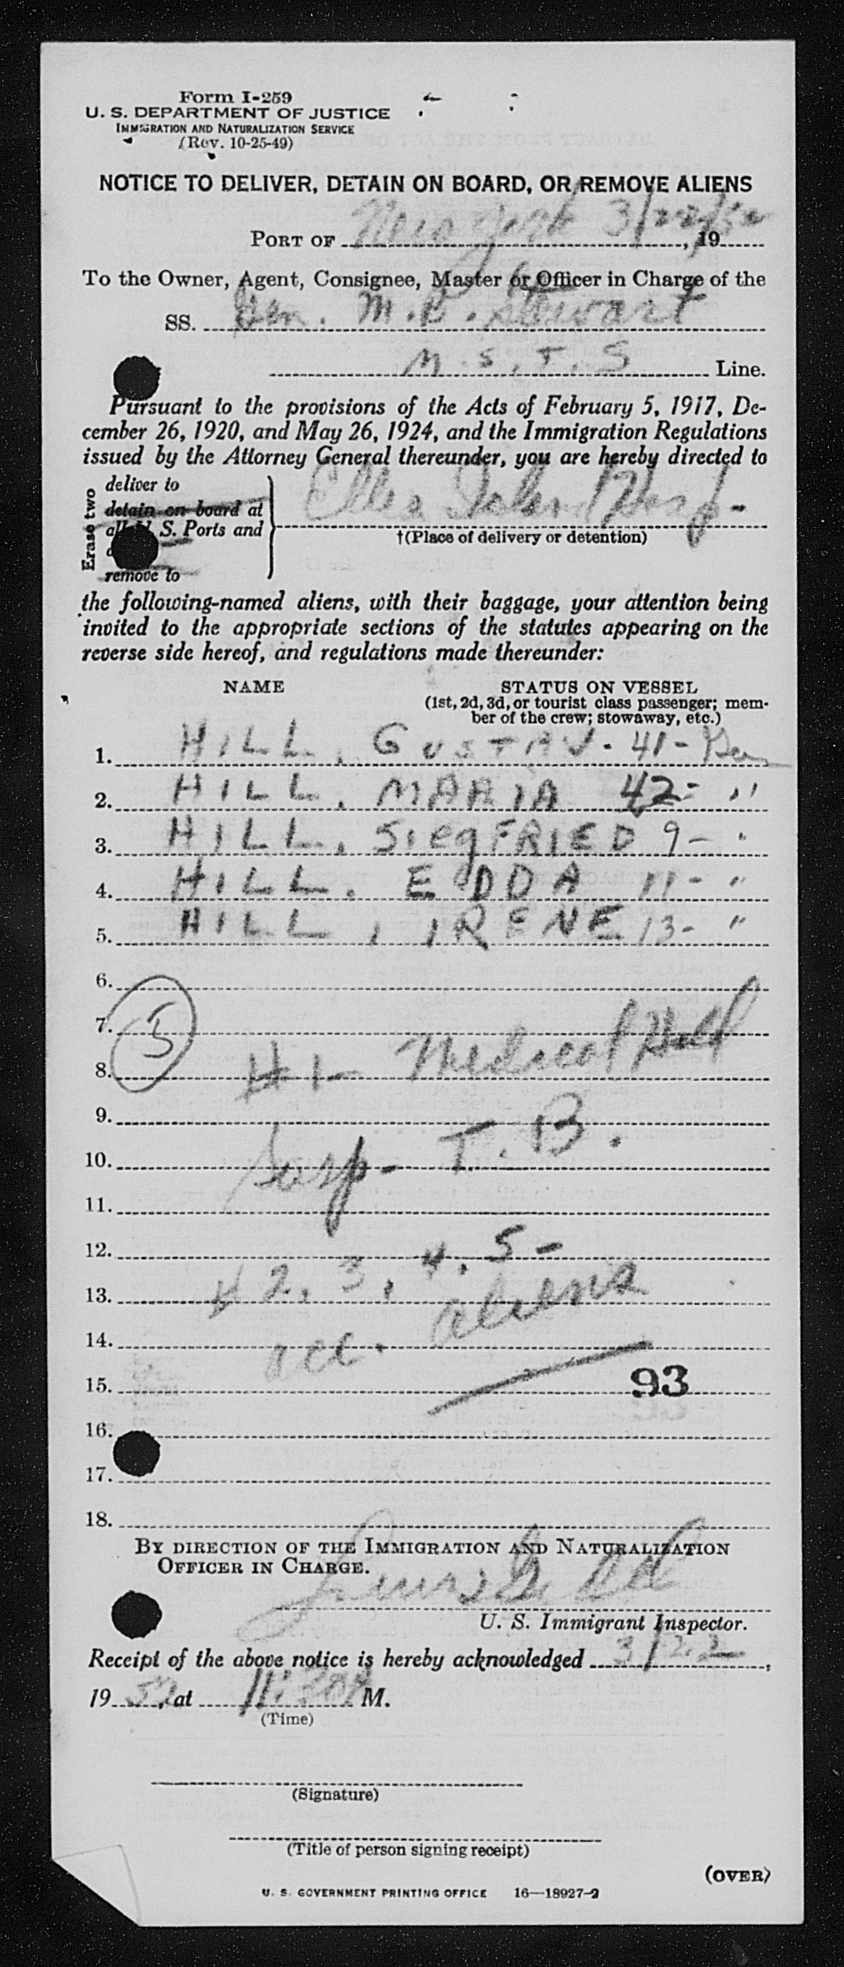 Form I-259
U. S. DEPARTMENT OF JUSTICE
IMMIGRATION AND NATURALIZATION SERVICE
(Rev. 10-25-49)
NOTICE TO DELIVER, DETAIN ON BOARD, OR REMOVE ALIENS
PORT OF New York 3/22/52, 19
To the Owner, Agent, Consignee, Master or Officer in Charge of the
SS. Gen. M. B. Stewart
M. S. T. S Line.
Pursuant to the provisions of the Acts of February 5, 1917, De-
cember 26, 1920, and May 26, 1924, and the Immigration Regulations
issued by the Attorney General thereunder, you are hereby directed to
Erase two
deliver to
detain on board at
all U. S. Ports and
remove to
Ellis Island Hosp-
†(Place of delivery or detention)
the following-named aliens, with their baggage, your attention being
invited to the appropriate sections of the statutes appearing on the
reverse side hereof, and regulations made thereunder:
NAME STATUS ON VESSEL
(1st, 2d, 3d, or tourist class passenger; mem-
ber of the crew; stowaway, etc.)
1. HILL, GUSTAV. 41- Ger
2. HILL, MARIA 42- "
3. HILL, SiegFRIED 9- "
4. HILL. EDDA 11- "
5. HILL, IRENE 13- "
6.
7. 5
8. #1- Medical Hold
9.
10. Susp- T.B.
11.
12.
13. # 2, 3, 4, 5-
14. acc. aliens
15. 93
16.
17.
18.
BY DIRECTION OF THE IMMIGRATION AND NATURALIZATION
OFFICER IN CHARGE.
U. S. Immigrant Inspector.
Receipt of the above notice is hereby acknowledged 3/22,
1952, at 11:20A M.
(Time)
(Signature)
(Title of person signing receipt)
(OVER)
U. S. GOVERNMENT PRINTING OFFICE 16—18927-2